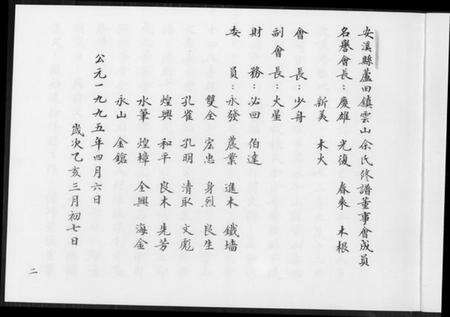 安溪縣蘆田鎮雲山余氏修譜董事會成員
名譽會長：慶雄 光復 春來 木根
新美 木火
會長：少舟
副會長：火星
財務：必回 伯達
委員：永發 農業 進木 鐵墻
雙全 宏忠 身烈 良生
孔雀 孔明 清取 文彪
煌興 和平 良木 建芳
水筆 煌樟 全興 海金
永山 金鎗
公元一九九五年四月六日
歲次乙亥三月初七日
二